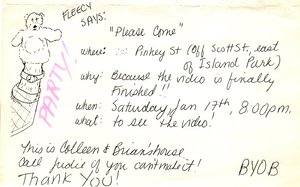 FLEECY
SAYS:
"Please Come"
PARTY!
where: Pinkey St (Off Scott St., east
of Island Park)
why: Because the video is finally
Finished!!
when: Saturday, Jan 17th, 8:00pm.
what: to see the video!
This is Colleen & Brian's house
Call Judie if you can't make it!
BYOB
THANK YOU!